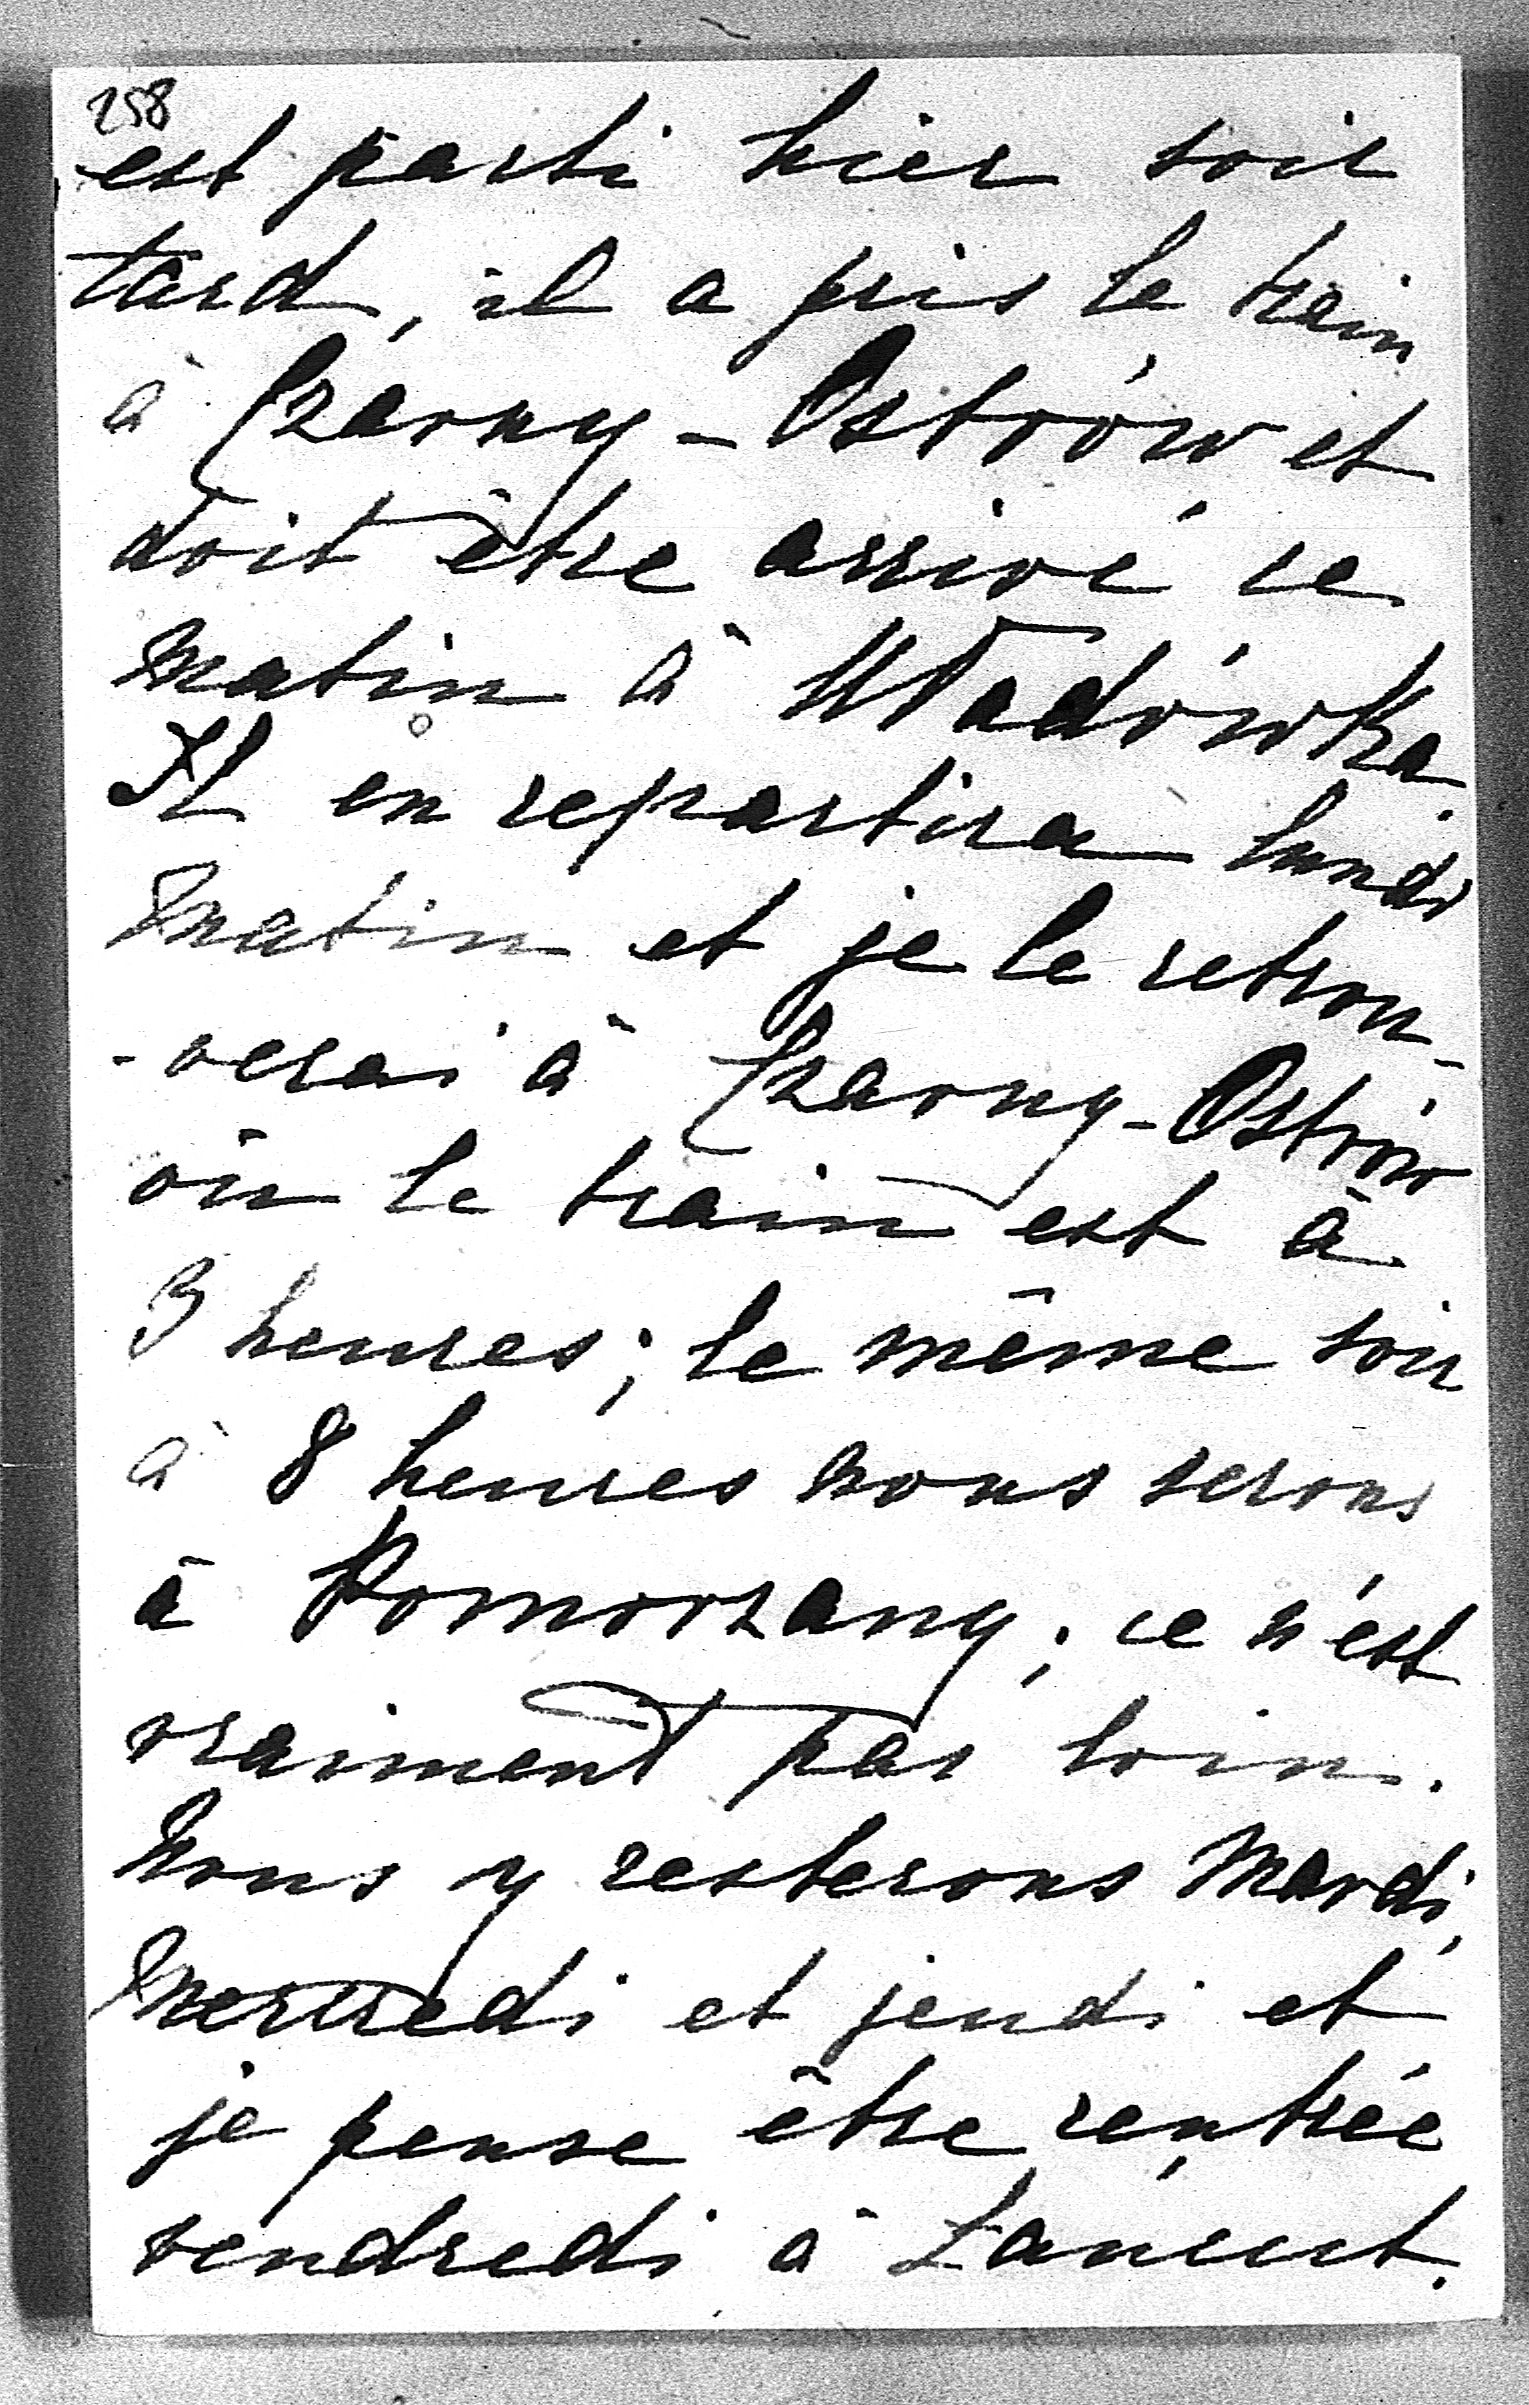 258
est parti hier soir
tard, il a pris le train
à Czarny-Ostrów et
doit être arrivé ce
matin à Władówka.
Il en repartira lundi
matin et je le retrou-
-verai à Czarny-Ostrów
où le train est à
3 heures; le même soir
à 8 heures nous serons
à Pomorzany; ce n'est
vraiment pas loin.
Nous y resterons mardi,
mercredi et jeudi et
je pense être rentrée
vendredi à Łancut.